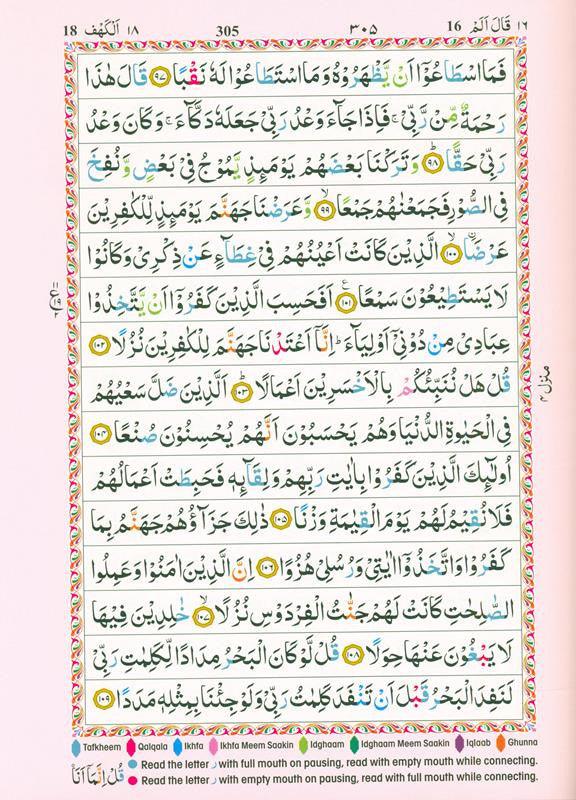 18 اَلْكَهْف ١٨ 305 ٣٠٥ 16 قَالَ اَلَمْ ١٦
فَمَا اسْطَاعُوْٓا اَنْ يَّظْهَرُوْهُ وَمَا اسْتَطَاعُوْا لَهٗ نَقْبًا ﴿۹۷﴾ قَالَ هٰذَا
رَحْمَةٌ مِّنْ رَّبِّىْ ۚ فَاِذَا جَآءَ وَعْدُ رَبِّىْ جَعَلَهٗ دَكَّآءَ ۚ وَكَانَ وَعْدُ
رَبِّىْ حَقًّا ﴿۹۸﴾ ؕ وَتَرَكْنَا بَعْضَهُمْ يَوْمَئِذٍ يَّمُوْجُ فِىْ بَعْضٍ وَّنُفِخَ
فِى الصُّوْرِ فَجَمَعْنٰهُمْ جَمْعًا ۙ ﴿۹۹﴾ وَّعَرَضْنَا جَهَنَّمَ يَوْمَئِذٍ لِّلْكٰفِرِيْنَ
عَرْضَا ۨ ۙ ﴿۱۰۰﴾ الَّذِيْنَ كَانَتْ اَعْيُنُهُمْ فِىْ غِطَآءٍ عَنْ ذِكْرِىْ وَكَانُوْا
لَا يَسْتَطِيْعُوْنَ سَمْعًا ﴿۱۰۱﴾ ع اَفَحَسِبَ الَّذِيْنَ كَفَرُوْٓا اَنْ يَّتَّخِذُوْا
عِبَادِىْ مِنْ دُوْنِىْٓ اَوْلِيَآءَ ؕ اِنَّآ اَعْتَدْنَا جَهَنَّمَ لِلْكٰفِرِيْنَ نُزُلًا ﴿۱۰۲﴾
قُلْ هَلْ نُنَبِّئُكُمْ بِالْاَخْسَرِيْنَ اَعْمَالًا ؕ ﴿۱۰۳﴾ اَلَّذِيْنَ ضَلَّ سَعْيُهُمْ
فِى الْحَيٰوةِ الدُّنْيَا وَهُمْ يَحْسَبُوْنَ اَنَّهُمْ يُحْسِنُوْنَ صُنْعًا ﴿۱۰۴﴾
اُولٰٓئِكَ الَّذِيْنَ كَفَرُوْا بِاٰيٰتِ رَبِّهِمْ وَلِقَآئِهٖ فَحَبِطَتْ اَعْمَالُهُمْ
فَلَا نُقِيْمُ لَهُمْ يَوْمَ الْقِيٰمَةِ وَزْنًا ﴿۱۰۵﴾ ذٰلِكَ جَزَآؤُهُمْ جَهَنَّمُ بِمَا
كَفَرُوْا وَاتَّخَذُوْٓا اٰيٰتِىْ وَرُسُلِىْ هُزُوًا ﴿۱۰۶﴾ اِنَّ الَّذِيْنَ اٰمَنُوْا وَعَمِلُوا
الصّٰلِحٰتِ كَانَتْ لَهُمْ جَنّٰتُ الْفِرْدَوْسِ نُزُلًا ۙ ﴿۱۰۷﴾ خٰلِدِيْنَ فِيْهَا
لَا يَبْغُوْنَ عَنْهَا حِوَلًا ﴿۱۰۸﴾ قُلْ لَّوْ كَانَ الْبَحْرُ مِدَادًا لِّكَلِمٰتِ رَبِّىْ
لَنَفِدَ الْبَحْرُ قَبْلَ اَنْ تَنْفَدَ كَلِمٰتُ رَبِّىْ وَلَوْ جِئْنَا بِمِثْلِهٖ مَدَدًا ﴿۱۰۹﴾
منزل ٤
Tafkheem Qalqala Ikhfa Ikhfa Meem Saakin Idghaam Idghaam Meem Saakin Iqlaab Ghunna
Read the letter ر with full mouth on pausing, read with empty mouth while connecting.
Read the letter ر with empty mouth on pausing, read with full mouth while connecting.
قُلْ اِنَّمَآ اَنَا